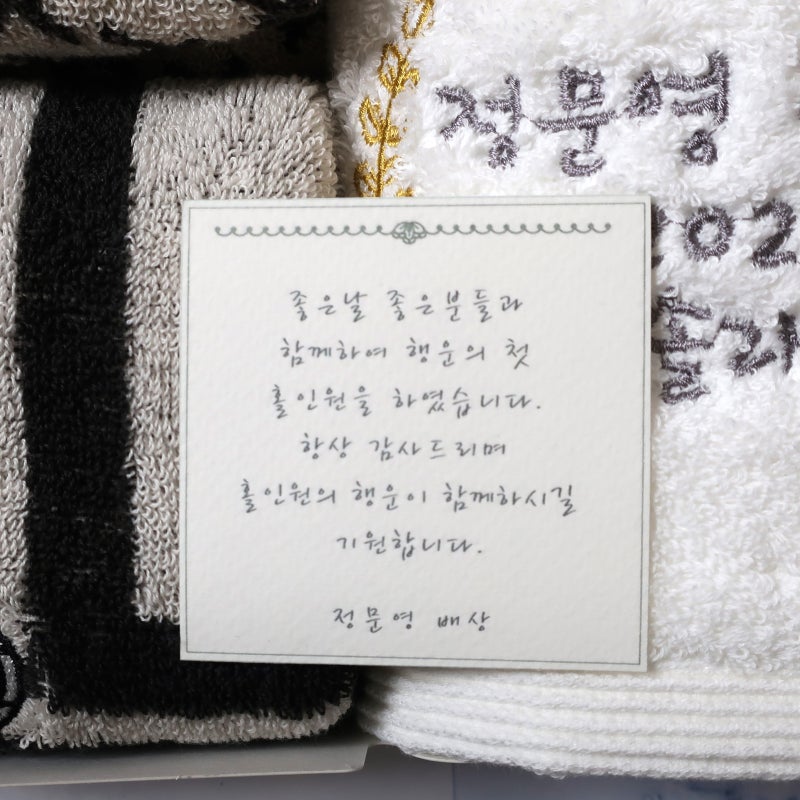 정문영
02
좋은날 좋은분들과
함께하여 행운의 첫
홀인원을 하였습니다.
항상 감사드리며
홀인원의 행운이 함께하시길
기원합니다.
정문영 배상